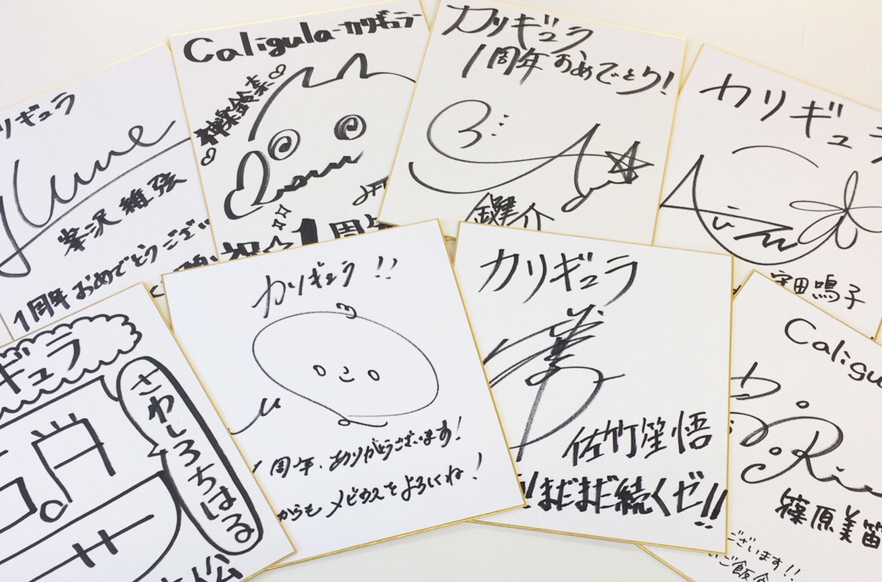 リギュラ
峯沢維弦
1周年おめでとうござい
Caligula-カリギュラ-
神楽鈴奈
祝☆1周年
カリギュラ
1周年おめでとう!
鍵介
カリギュラ
守田鳴子
ギュラ
さわしろちはる
カリギュラ!!
1周年、ありがとうございます!
からもメビウスをよろしくね!
カリギュラ
佐竹笙悟
まだまだ続くゼ!!
Caligu
篠原美笛
ございます!!
ご飯